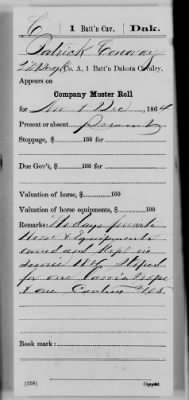 C | 1 Batt'n Cav. | Dak.
Patrick Conway
Co. A, 1 Batt'n Dakota Cavalry.
Appears on
Company Muster Roll
for Nov & Dec, 1864
Present or absent, Present
Stoppage, $ 100 for
Due Gov't, $ 100 for
Valuation of horse, $ 100
Valuation of horse equipments, $ 100
Remarks: No days private
Horse & Equipments
owned and kept in
service 186 Stoped
for one Lariat rope
& one Canteen
Book mark:
(358)
Copyist.